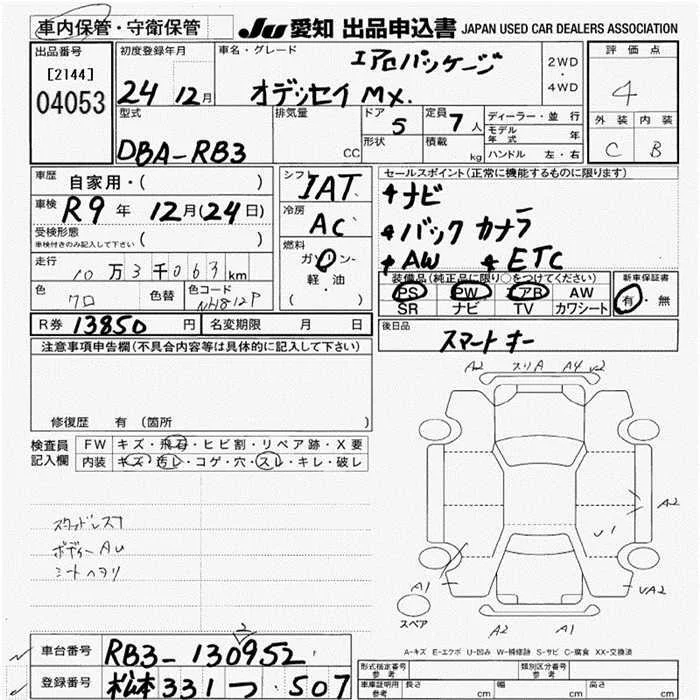 車内保管・守衛保管
JU 愛知 出品申込書 JAPAN USED CAR DEALERS ASSOCIATION
出品番号
[2144]
04053
初度登録年月
24 12月
車名・グレード
エアロパッケージ
オデッセイ MX.
2WD
・
4WD
評価点
4
外装 内装
C B
型式
DBA-RB3
排気量
CC
ドア 5
形状
定員 7人
積載 kg
ディーラー・並 行
モデル年式 年
ハンドル 左・右
車歴 自家用・( )
車検 R9年 12月(24日)
受検形態
車検付きのみ記入して下さい ( )
走行 10万3千063km
色 クロ 色替 色コード NH812P
シフト IAT
冷房 AC
燃料
ガソリン・
軽 油
( )
セールスポイント(正常に機能するものに限ります)
ナビ
バック カメラ
AW ETC
装備品(純正品に限り○をつけてください)
PS PW エアB AW
SR ナビ TV カワシート
新車保証書
有・無
R券 13850円 名変期限 月 日
後日品
スマートキー
注意事項申告欄(不具合内容等は具体的に記入して下さい)
修復歴 有 (箇所 )
検査員
記入欄
FW キズ・飛石・ヒビ割・リペア跡・X要
内装 キズ・汚レ・コゲ・穴・スレ・キレ・破レ
スタッドレス
ボディー AU
シートヘタリ
A2 スリA A4
A2
U1
A1
VA2
スペア
A2 A1
A-キズ E-エクボ U-凹み W-補修跡 S-サビ C-腐食 XX-交換済
車台番号 RB3-130952
2
登録番号 松本 331 つ・507
形式指定番号
参考
類別区分番号
参考
車庫証明用
参考
長さ cm 幅 cm 高さ cm